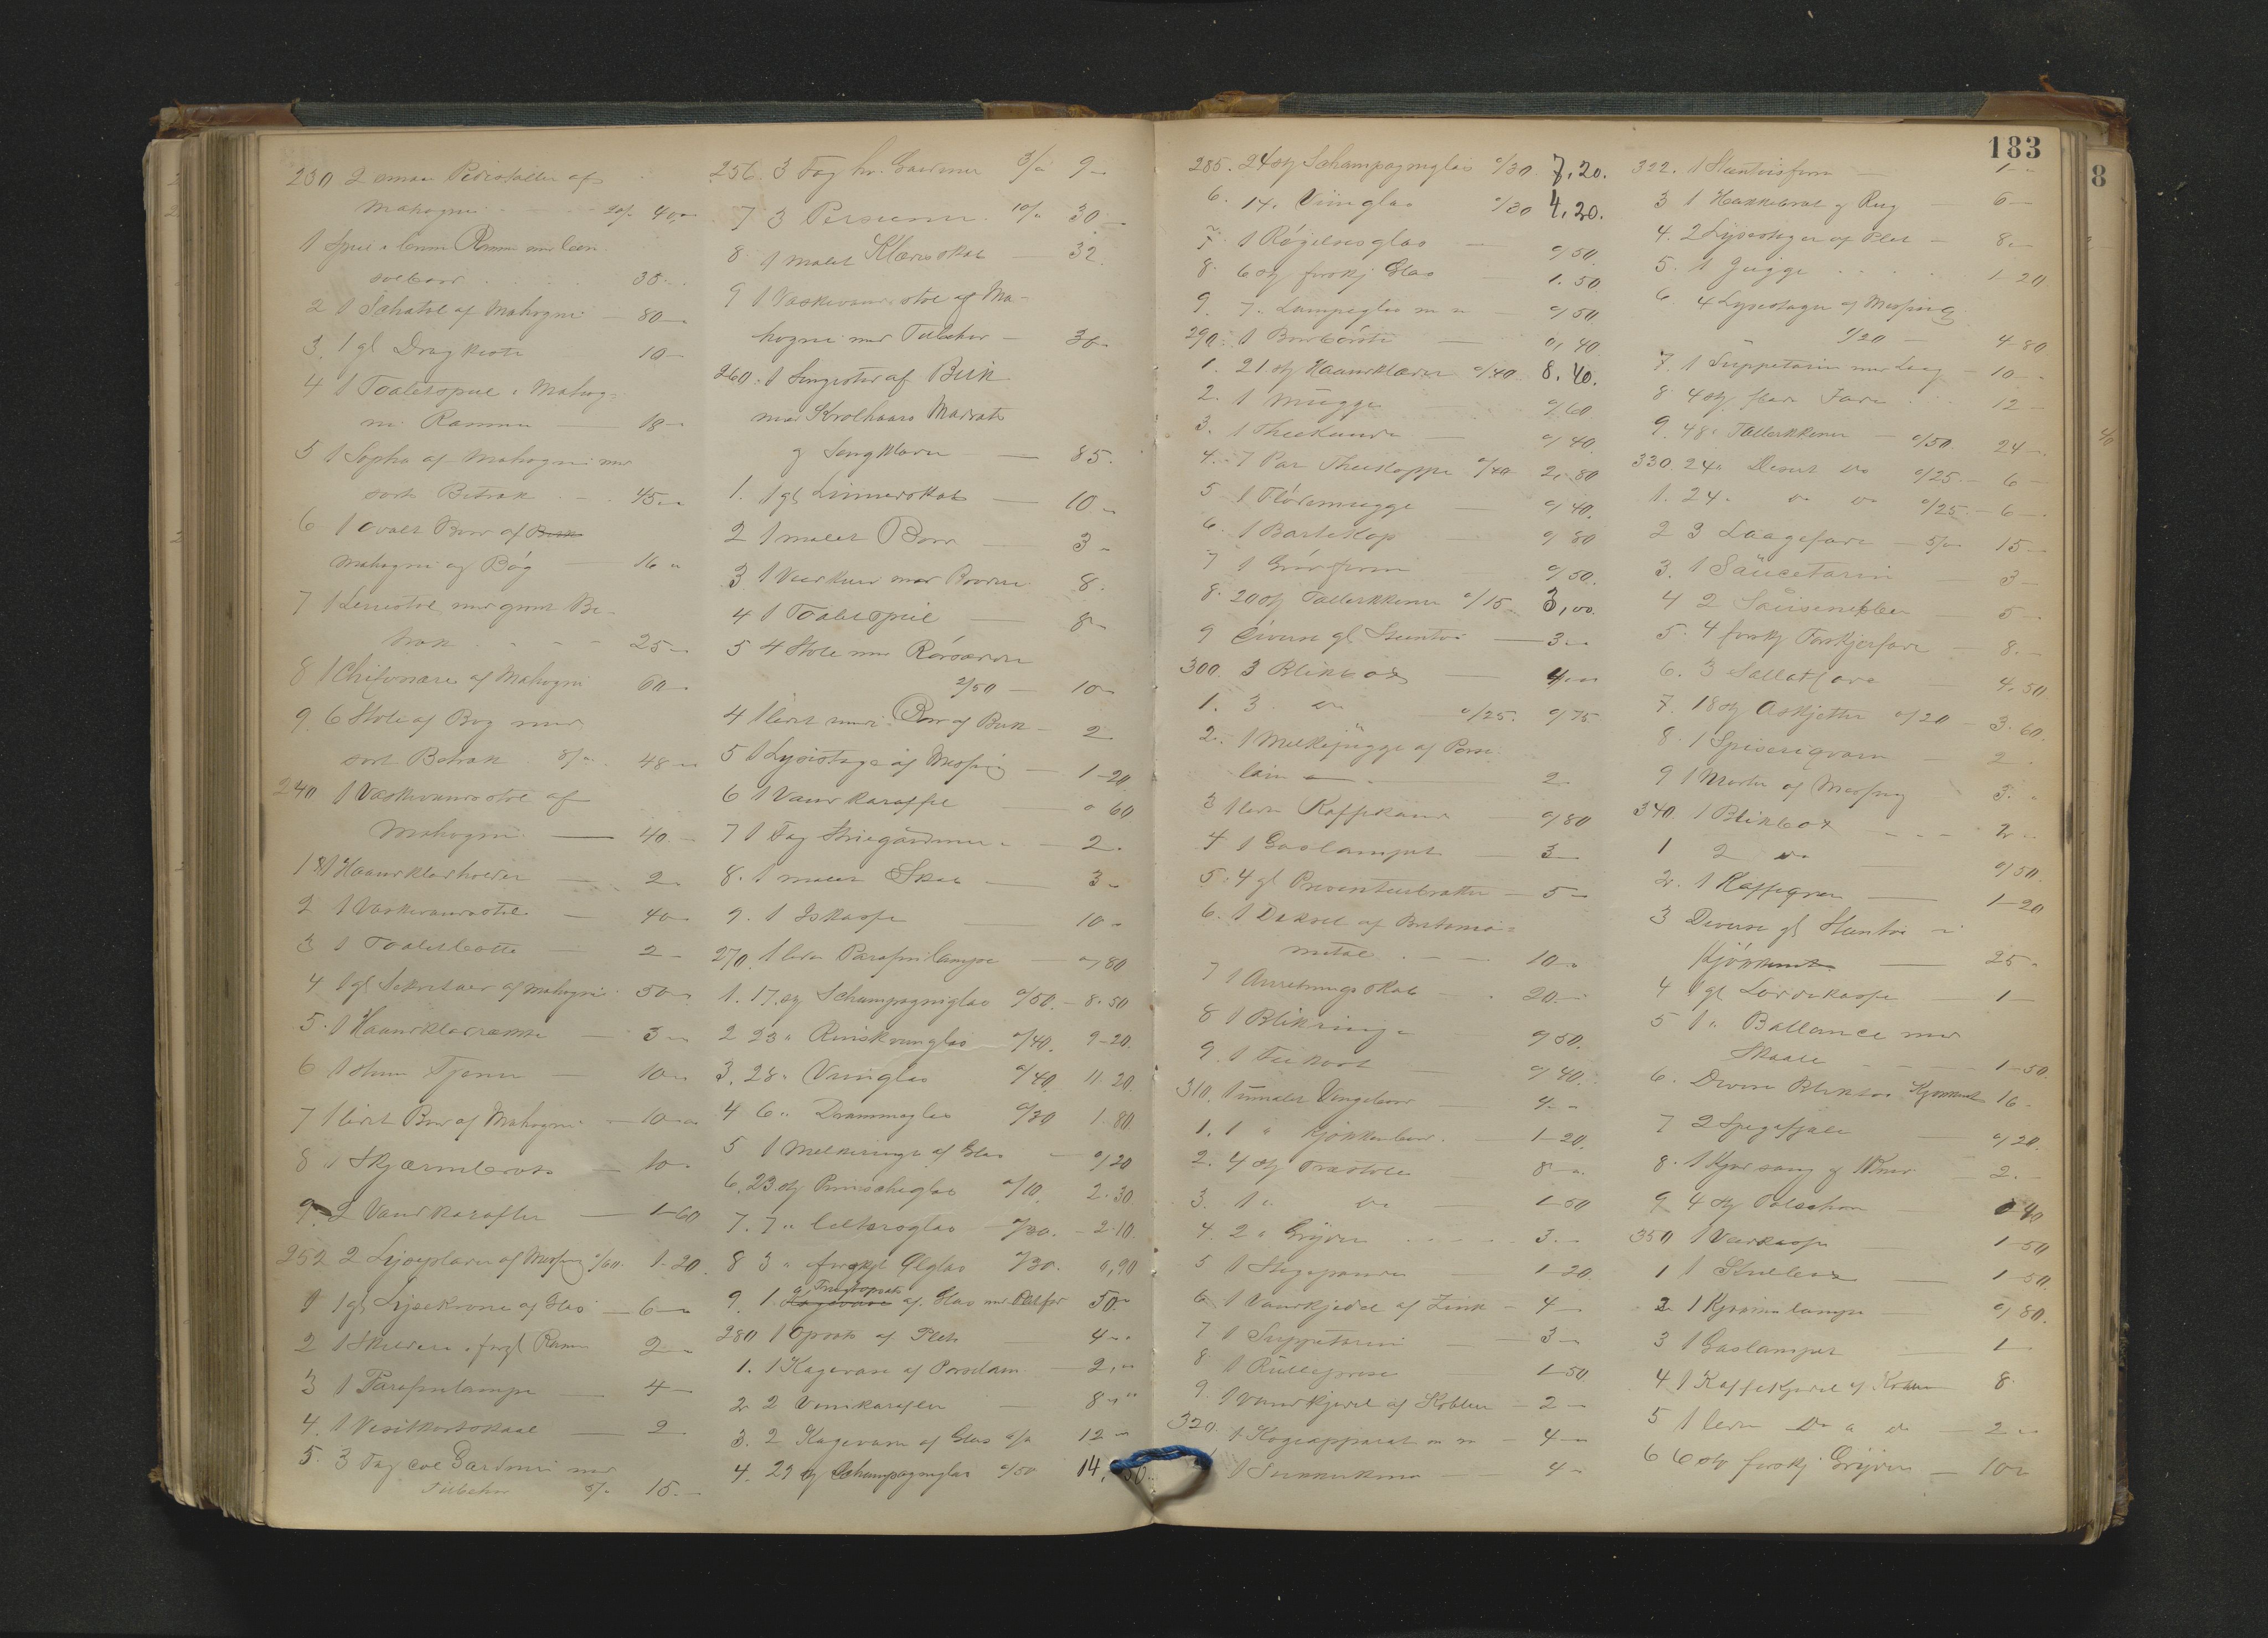 183
8
230 2 smaa Pidestaller af
Mahogni 20/- 40,-
1 Speil i brun Ramme med Con
solbord 35-
2 1 Schatol af Mahogni - 80-
3. 1 gl Dragkiste 10-
4 1 Toaletspeil i Mahog=
ni Ramme - 18-
5 1 Sopha af Mahogni med
sort Betræk 45-
6 1 ovalt Bord af
Mahogni og Bøg - 16 "
7 1 Lænestol med grønt Be-
træk - 25-
8 1 Chifonære af Mahogni 60-
9. 6 Stole af Bøg med
sort Betræk 8/- 48-
240 1 Vaskevandsstol af
Mahogni - 40-
1 1 Haandklædholder - 2-
2 1 Vaskevandsstol - 40-
3 1 Toaletbøtte - 2-
4 1 gl Sekretær af Mahogni 50-
5. 1 Haandklæd - 3-
6 1 stum Tjener - 10-
7 1 lidet Bord af Mahogni - 10-
8 1 Skjærmbræt - 10-
9. 2 Vandkarafler - 1-60
252 2 Lyseplader af Messing o/60 1-20
1 1 gl Lysekrone af Glas - 6-
2 1 Skilderi i forgl Ramme 2-
3 1 Parafinlampe - 4-
4. 1 Visitkortskaal - 2
5. 3 Fag Gardiner med
Tilbehør 5/- 15.-
256. 3 Fag hv. Gardiner 3/- 9-
7 3 Persienner 10/- 30-
8. 1 malet Klædesskab - 32.
9 1 Vaskevandsstol af Ma-
hogni med Tilbehør - 36-
260. 1 Sengested af Birk
med Krølhaars Madrats
og Sengklæder - 85.
1. 1 gl Linnedskab - 10-
2 1 malet Bord - 3-
3 1 Vækkeur 8.
4 1 Toaletspeil - 8-
5 4 Stole med Rørsæder
2/50 - 10-
4 1 lidet Bord af Birk - 2
5 1 Lysestage af Messing - 1-20
6 1 Vandkaraffel - o 60
7 1 Fag Striegardiner - 2.
8. 1 malet Skab - 3-
9. 1 Iskasse - 10-
270. 1 liden Parafinlampe - o/80
1. 17 stk Schampagneglas o/50 - 8.50
2 23 " Rinskvinglas o/40. 9-20.
3. 28 " Vinglas o/40 11.20
4 6 " Drammeglas o/30 1.80
5 1 Melkeringe af Glas - o/20
6. 23 stk Punscheglas o/10. 2.30
7. 7 " Selterglas o/30. - 2-10.
8 3 " forskjl Ølglas o/30. 0,90
9. 1. Frugtopsats af Glas med 50-
280 1 Opsats af Plet - 4-
1. 1 Kagevase af Porselæn - 2,-
2 2 Vinkarafler - 8-"
3. 2 Kagevase af Glas 6/- 12-
4. 29 stk Schampagneglas o/50 14,50.
285. 24 stk Schampagneglas o/30 7,20.
6. 14. Vinglas o/30 4,20.
7. 1 Røgelsesglas - o/50.
8. 6 stk forskj Glas - 1.50
9. 7. Lampeglas m m - o/50.
290. 1 Bordbørste - o,40.
1. 21 stk Haandklæder o/40 8,40.
2. 1 Mugge o/60
3. 1 Theekande - o/40.
4. 7 Par Theekopper o/40 2,80
5. 1 Flødemugge - o/40.
6. 1 Bartekop o/80
7 1 Grødform o/50.
8. 20 stk Tallerkkener o/15 3,00.
9 Diverse gl Stentøi - 3-
300. 3 Blikbox - 4,-
1. 3 do o/25. o/75
2. 1 Melkejugge af Porse
læn - 2-
3 1 liden Kaffekande - o/80
4 1 Gaslampet - 3-
5. 4 gl Presenteerbrætter - 5-
6. 1 Dæksel af Britannia=
metal - 10-
7 1 Anretningsskab - 20.-
8 1 Blikringe o/50.
9. 1 Feikost - o/40.
310. 1 umalet Vingebord - 4-
1. 1 " Kjøkkenbord. - 1-20.
2. 4 stk Træstole - 8-
3. 1 " do - 1-50
4. 2 " Gryder 3.-
5 1 Stegepande - 1-20
6 1 Vandkjedel af Zink - 4-
7 1 Suppeterin - 3-
8 1 Rullepresse - 1-50.
9. 1 Vandkjedel af Kobber - 2-
320. 1 Kogeapparat m m - 4-
1 - 4-
322. 1 Stentøisform - 1-
3 1 Hakkebræt og Rug 6-
4. 2 Lysestager af Plet - 8-
5. 1 Jugge 1-20
6 4 Lysestager af Messing
1/20 - 4-80
7. 1 Suppeterin med Laag - 10-
8 4 stk flade Fade 12-
9. 48 " Tallerkkener - o/50. 24-
330. 24 " Desert do o/25. - 6-
1. 24. do do o/25. - 6-
2 3 Laagefade - 5/- 15-
3. 1 Saucetarin 3-
4 2 5-
5. 4 forskj Forskjærfade - 8.-
6. 3 Sallatfade 4.50
7. 18 stk Askjetter o/20 - 3.60.
8. 1 2.
9 1 Morter af Messing 3.-
340. 1 Blikbox - 2-
1 2 do - o/50.
2. 1 Kaffeqvern - 1-20
3 Diverse gl Stentøi i
Kjøkkenet - 25-
4 1 gl - 1-
5 1 " Ballance med
Skaale 1-50.
6. Diverse Bliktøi Kjøkkenet 16-
7 2 - o/20.
8. 1 Kjødsaug og 1 Kniv - 2.-
9 4 stk - 0-40
350 1 Vedkasse - 1-50
1 1 - 1-50.
2. 1 lampe - o/80.
3 1 Gaslampet - 1-
4 1 Kaffekjedel af Kobber 8.
5 1 liden do a do 2-
6 6 stk forskj Gryder - 10-